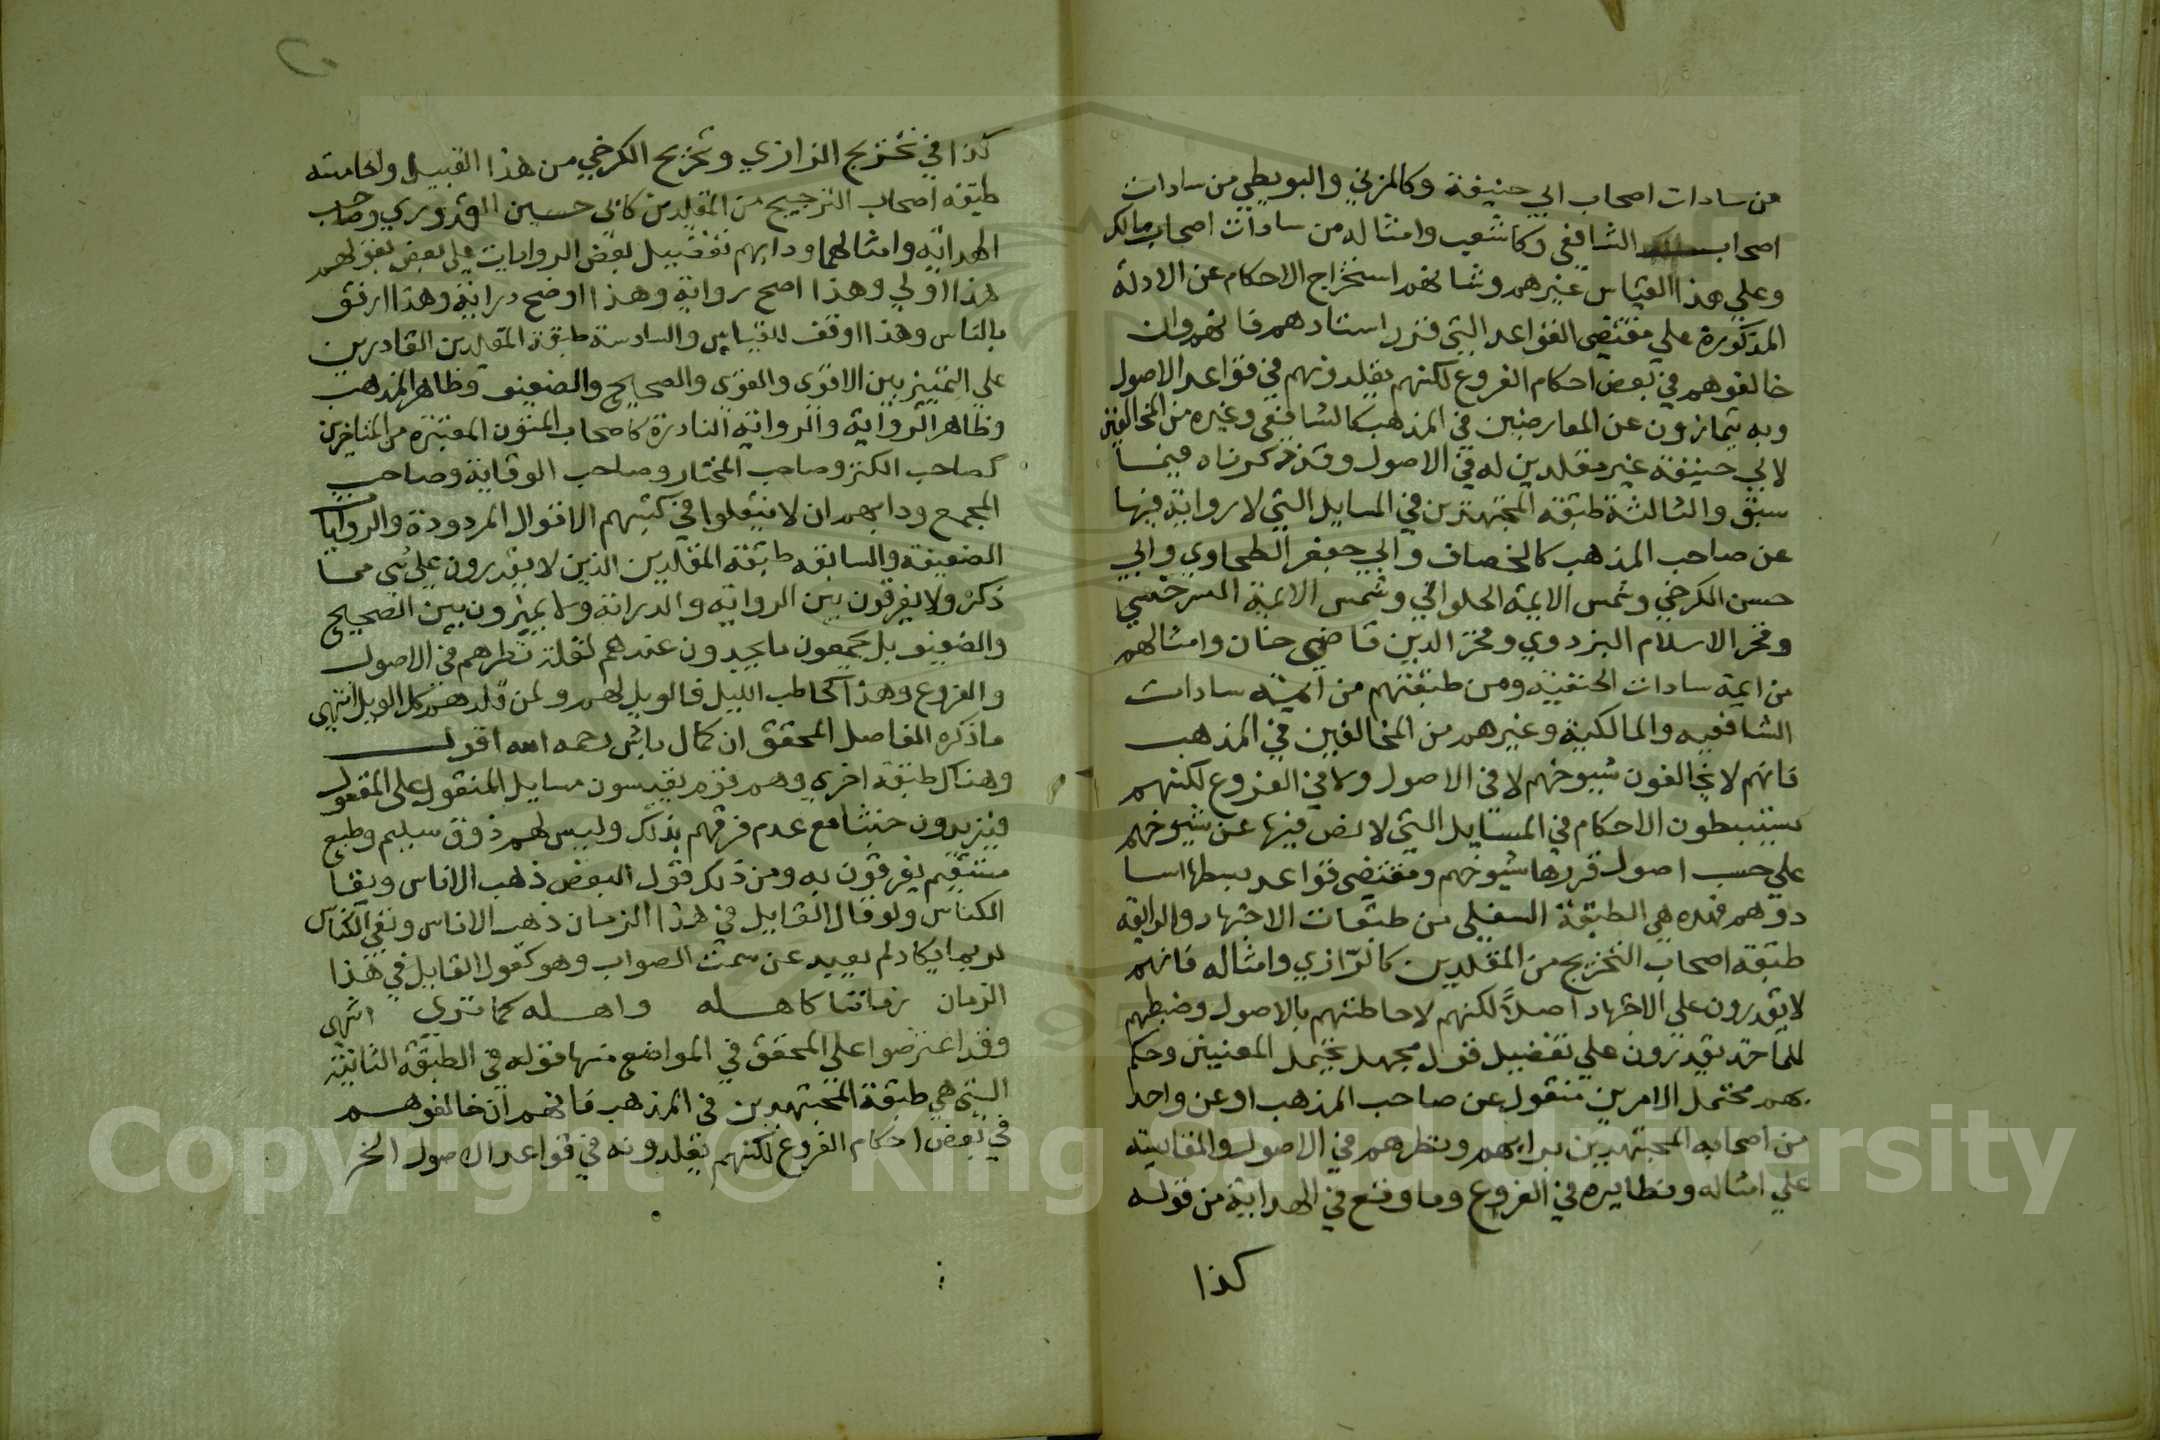 من سادات اصحاب ابي حنيفة وكالمزني والبويطي من سادات
اصحاب الشافعي وكاشهب وامثاله من سادات اصحاب مالك
وعلي هذا القياس غيرهم وشانهم استخراج الاحكام عن الادلة
المذكورة علي مقتضي القواعد التي قرر استادهم فانهم وان
خالفوهم في بعض احكام الفروع لكنهم يقلدونهم في قواعد الاصول
وبه يتمازون عن المعارضين في المذهب كالشافعي وغيره من المخالفين
لابي حنيفة غير مقلدين له في الاصول وقد ذكرناه فيما
سبق والثالثة طبقة المجتهدين في المسايل التي لا رواية فيها
عن صاحب المذهب كالخصاف وابي جعفر الطحاوي وابي
حسن الكرخي وشمس الايمة الحلواني وشمس الايمة السرخسي
وفخر الاسلام البزدوي وفخر الدين قاضي خان وامثالهم
من ايمة سادات الحنفية ومن طبقتهم من ايمة سادات
الشافعيه والمالكية وغيرهم من المخالفين في المذهب
فانهم لا يخالفون شيوخهم لا في الاصول ولا في الفروع لكنهم
يستنبطون الاحكام في المسايل التي لا نص فيها عن شيوخهم
علي حسب اصول قررها شيوخهم ومقتضي قواعد بسطها اسا
دوهم فهده هي الطبقة السفلي من طبقات الاجتهاد والرابعة
طبقة اصحاب التخريج من المقلدين كالرازي وامثاله فانهم
لا يقدرون علي الاجتهاد اصلا لكنهم لاحاطتهم بالاصول وضبطهم
للماخذ يقدرون علي تفضيل قول مجهل يحتمل المعنيين وحكم
بهم محتمل الامرين منقول عن صاحب المذهب او عن واحد
من اصحابه المجتهدين برايهم ونظرهم في الاصول والمقايسه
علي امثاله ونظايره في الفروع وما وقع في الهداية من قوله
كذا
٢٠
كذا في تخريج الرازي وتخريج الكرخي من هذا القبيل والخامسه
طبقه اصحاب الترجيح من المقلدين كابي حسين القدوري وصاحب
الهداية وامثالهما ودابهم تفضيل بعض الروايات علي بعض بقولهم
هذا اولي وهذا اصح رواية وهذا اوضح دراية وهذا ارفق
بالناس وهذا اوفق للقياس والسادسة طبقة المقلدين القادرين
علي التمييز بين الاقوي والقوي والصحيح والضعيف وظاهر المذهب
وظاهر الرواية والرواية النادرة كاصحاب المتون المعتبرة من المتاخرين
كصاحب الكنز وصاحب المختار وصاحب الوقاية وصاحب
المجمع ودابهم ان لا ينقلوا في كتبهم الاقوال المردودة والروايا
الضعيفة والسابعه طبقة المقلدين الذين لا يقدرون علي شي مما
ذكر ولا يفرقون بين الرواية والدراية ولا يميزون بين الصحيح
والضعيف بل يجمعون ما يجدون عندهم لقلة نظرهم في الاصول
والفروع وهذا كحاطب الليل فالويل لهم ولمن قلدهم كل الويل انتهى
ما ذكره الفاضل المحقق ابن كمال باش رحمه الله اقول
وهناك طبقة اخري وهم قوم يقيسون مسايل المنقول على المعقول
فيزيدون خبثا مع عدم فرقهم بذلك وليس لهم ذوق سليم وطبع
مستقيم يفرقون به ومن ذلك قول البعض ذهب الاناس وبقا
الكناس ولو قال القايل في هذا الزمان ذهب الاناس ونفي الكناس
لربما يكاد لم بعيد عن سمت الصواب وهو كقول القايل في هذا
الزمان زماننا كاهله واهله كما تري انتهى
وقد اعترضوا علي المحقق في المواضع منها قوله في الطبقة الثانية
التي هي طبقة المجتهدين في المذهب فانهم ان خالفوهم
في بعض احكام الفروع لكنهم يقلدونه في قواعد الاصول الخ
Copyright © King Saud University